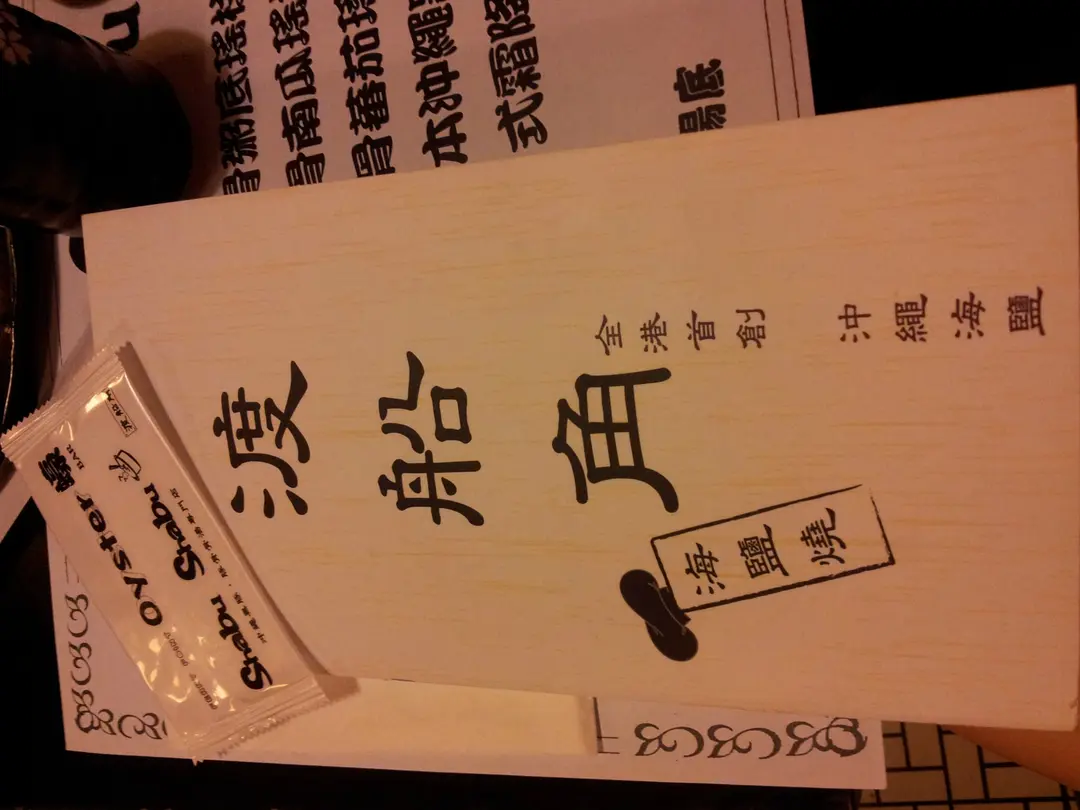 渡船角
全港首創 沖繩海鹽
海鹽燒
骨粥底瑤
骨南瓜瑤
骨蕃茄瑤
本沖繩
式霜降
底
蠔
BAR
Oyster
Shabu Shabu